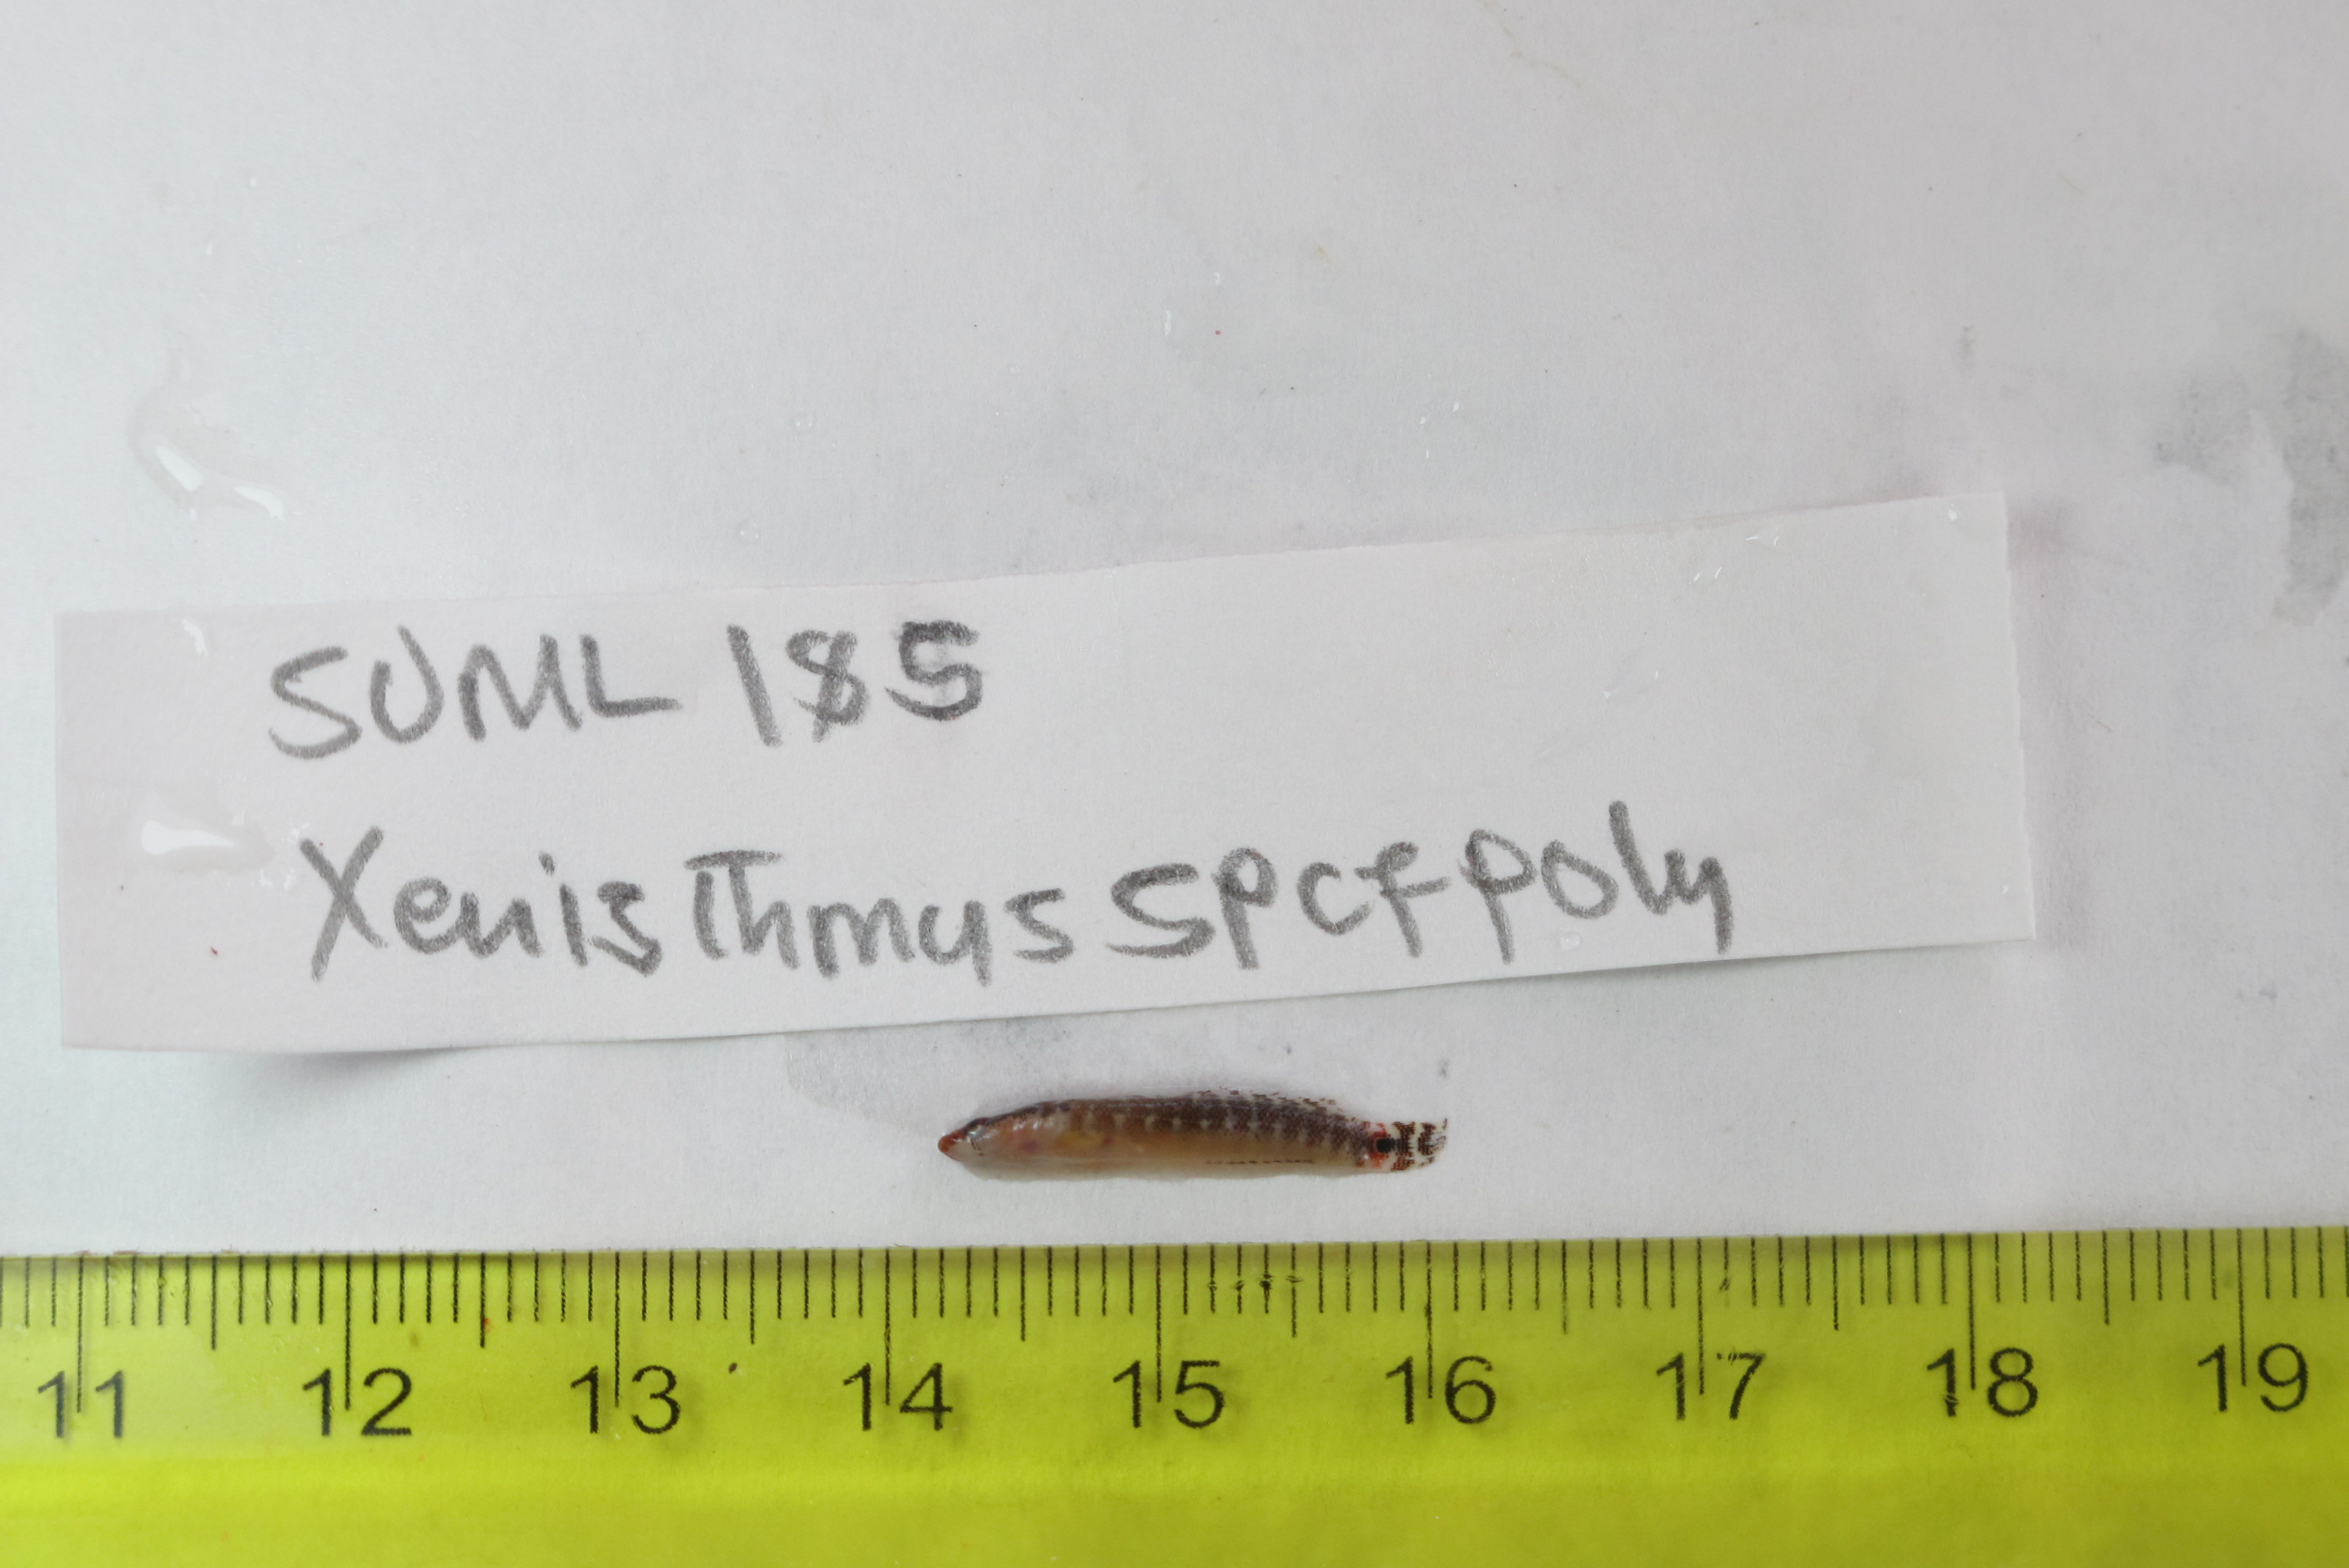 SUML 185
Xenisthmus SP CF Poly
11 12 13 14 15 16 17 18 19